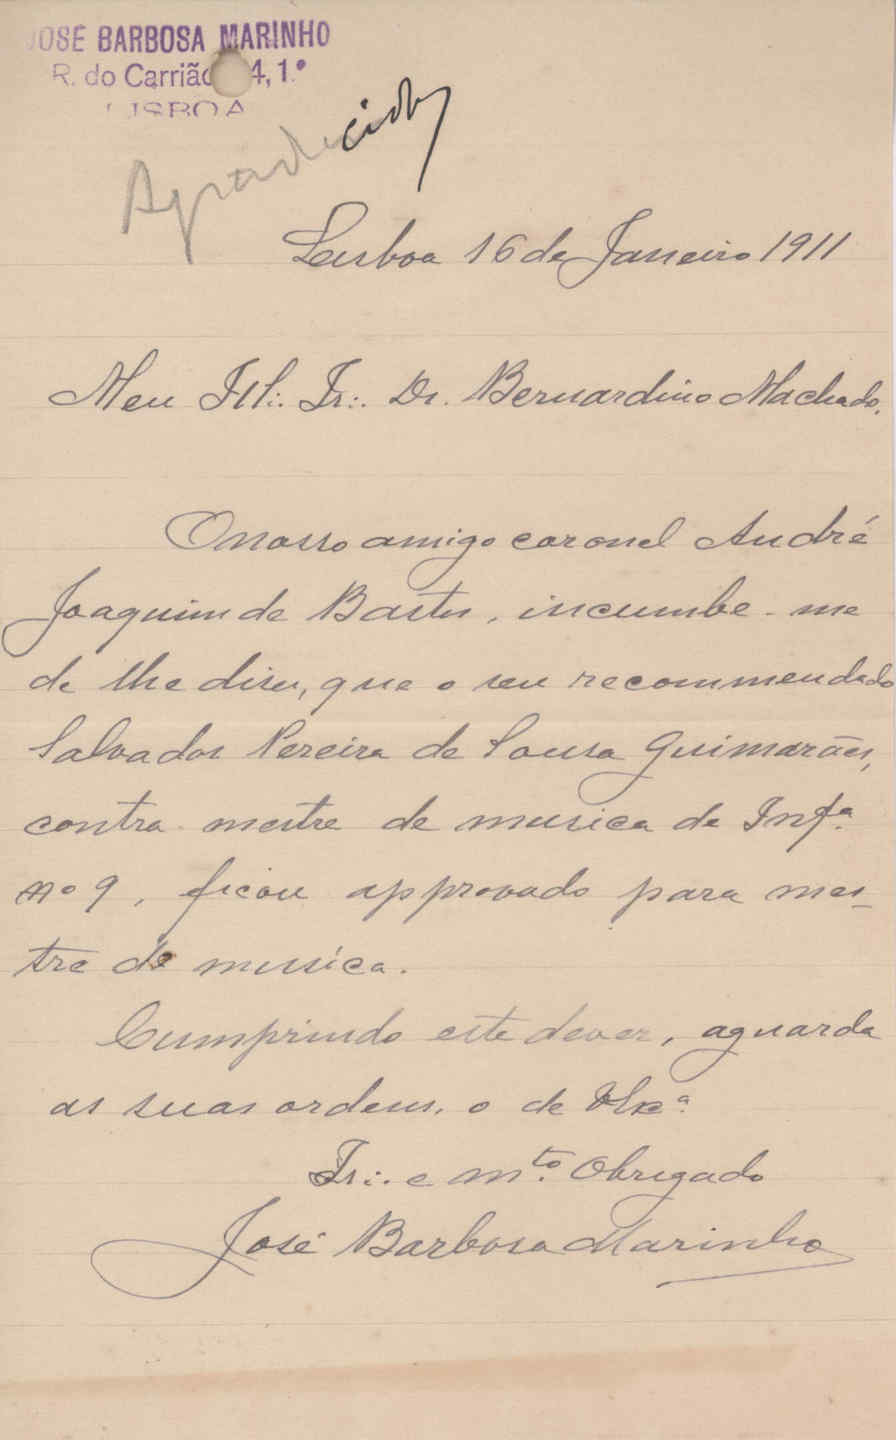 JOSÉ BARBOSA MARINHO
R. do Carrião 4, 1.º
LISBOA
Agradecido
Lisboa 16 de Janeiro 1911
Meu Ill∴ Ir∴ Dr. Bernardino Machado,
O nosso amigo coronel André
Joaquim de Bastos, incumbe-me
de lhe diser, que o seu recommendado
Salvador Pereira de Sousa Guimarães,
contra-mestre de musica de Infª.
nº 9, ficou approvado para mes-
tre de musica.
Cumprindo este dever, aguarda
as suas ordens, o de
Ir∴ e mto. Obrigado
José Barbosa Marinho